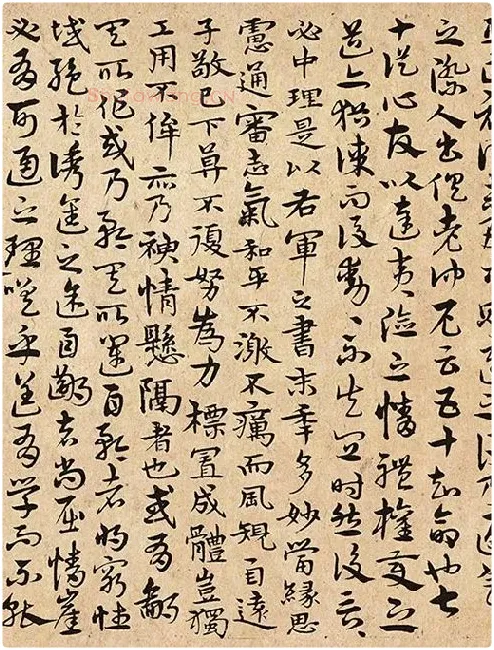 之際人書俱老仲尼云五十知命也七
十從心故以達夷險之情體權變之
道亦猶謀而後動動不失宜時然後言言
必中理矣是以右軍之書末年多妙當緣思
慮通審志氣和平不激不厲而風規自遠
子敬已下莫不鼓努為力標置成體豈獨
工用不侔亦乃神情懸隔者也或有鄙
其所作或乃矜其所運自矜者將窮性
域絕於誘進之途自鄙者尚屈情涯
必有可通之理嗟乎蓋有學而不能